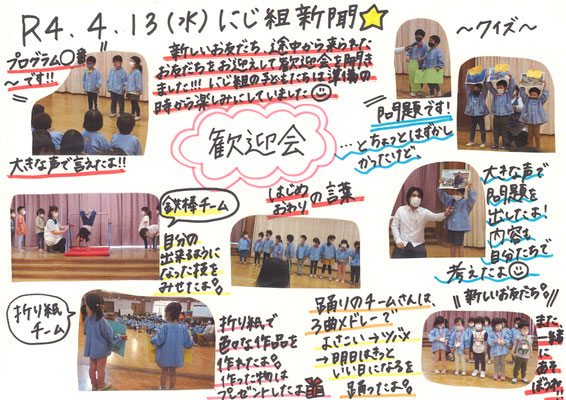 R4.4.13(水)にじ組新聞☆
プログラム〇番
〜です!!
大きな声で言えたよ!!
新しいお友だち、途中から来られた
お友だちをお迎えして歓迎会を開き
ました!!! にじ組の子どもたちは準備の
時から楽しみにしていました
歓迎会
〜クイズ〜
問題です!
…とちょっとはずかし
かったけど、
大きな声で
問題を
出したよ!
内容も
自分たちで
考えたよ
鉄棒チーム
自分の
出来るように
なった技を
みせたよ。
はじめ
おわり
の言葉
折り紙
チーム
折り紙で
色々な作品を
作れたよ。
作った物は
プレゼントしたよ
踊りのチームさんは、
3曲メドレーで
よさこい→ツバメ
→明日はきっと
いい日になるを
踊ったよ。
新しいお友だち。
また
一緒
に
あそ
ぼうね!!